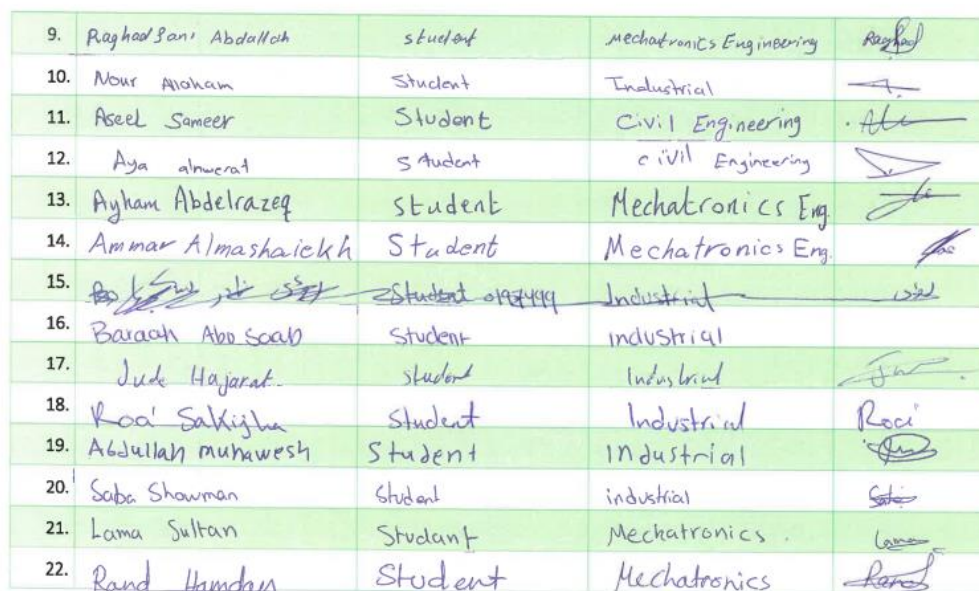 9. Raghad Sani Abdallah student Mechatronics Engineering Raghad
10. Nour Student Industrial
11. Aseel Sameer Student Civil Engineering
12. Aya alnwerat student civil Engineering
13. Ayham Abdelrazeq student Mechatronics Eng.
14. Ammar Almashaiekh Student Mechatronics Eng.
15. Student Industrial
16. Baraah Abo Saab Student industrial
17. Jude Hajarat student Industrial
18. Roa' Sakijha Student Industrial
19. Abdullah muhawesh Student industrial
20. Saba Showman Student industrial
21. Lama Sultan Studant Mechatronics. Lama
22. Rand Hamdan Student Mechatronics Rand